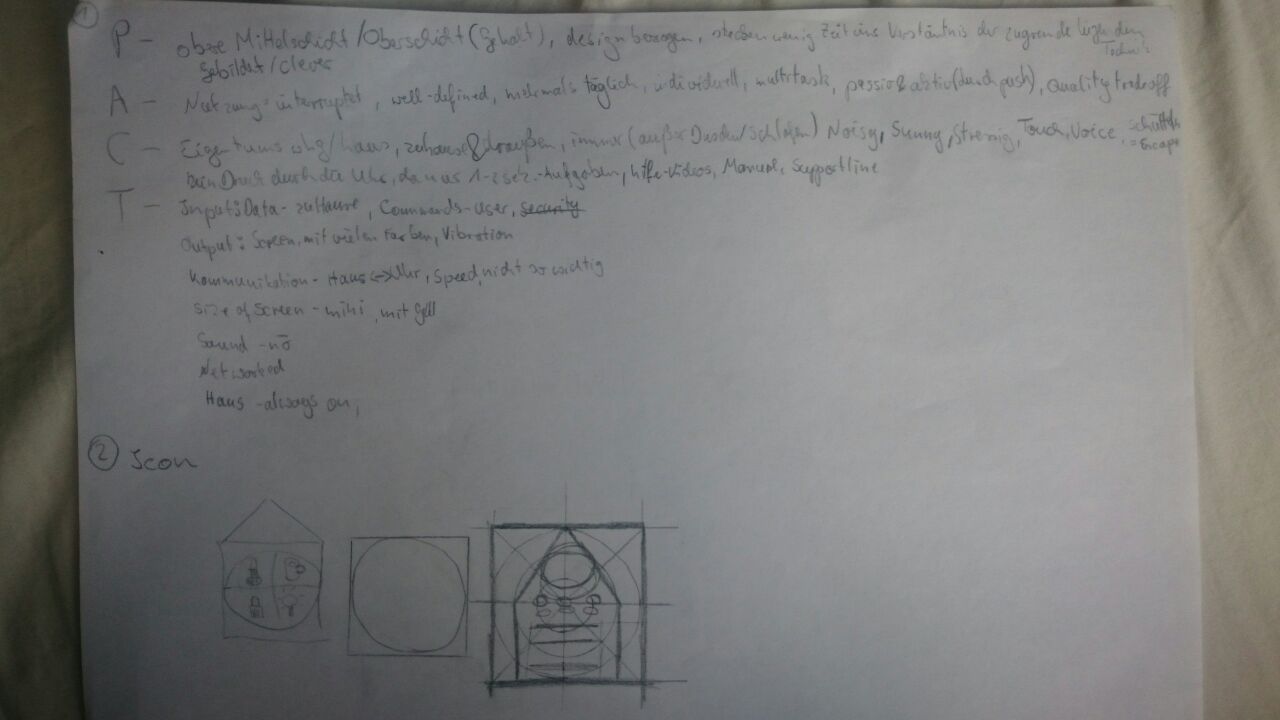 ①
P - obere Mittelschicht/Oberschicht (Gehalt), designbezogen, stecken wenig Zeit ins Verständnis der zugrunde liegenden Technik
gebildet/clever
A - Nutzung: interrupted, well-defined, mehrmals täglich, individuell, multitask, passiv & aktiv (durch push), Quality tradeoff
C - Eigentumswhg/haus, zuhause & draußen, immer (außer Duschen/Schlafen) Noisy, Sunny, Stressig, Touch, Voice, Schütteln = Escape
kein Druck durch die Uhr, da nur 1-2 sek.-Aufgaben, hilfe-Videos, Manual, Supportline
T - Input: Data - zuHause, Commands - User, security
Output: Screen, mit vielen Farben, Vibration
Kommunikation - Haus <-> Uhr, Speed nicht so wichtig
Size of Screen - mini, mit
Sound - nö
Networked
Haus - always on,
② Icon